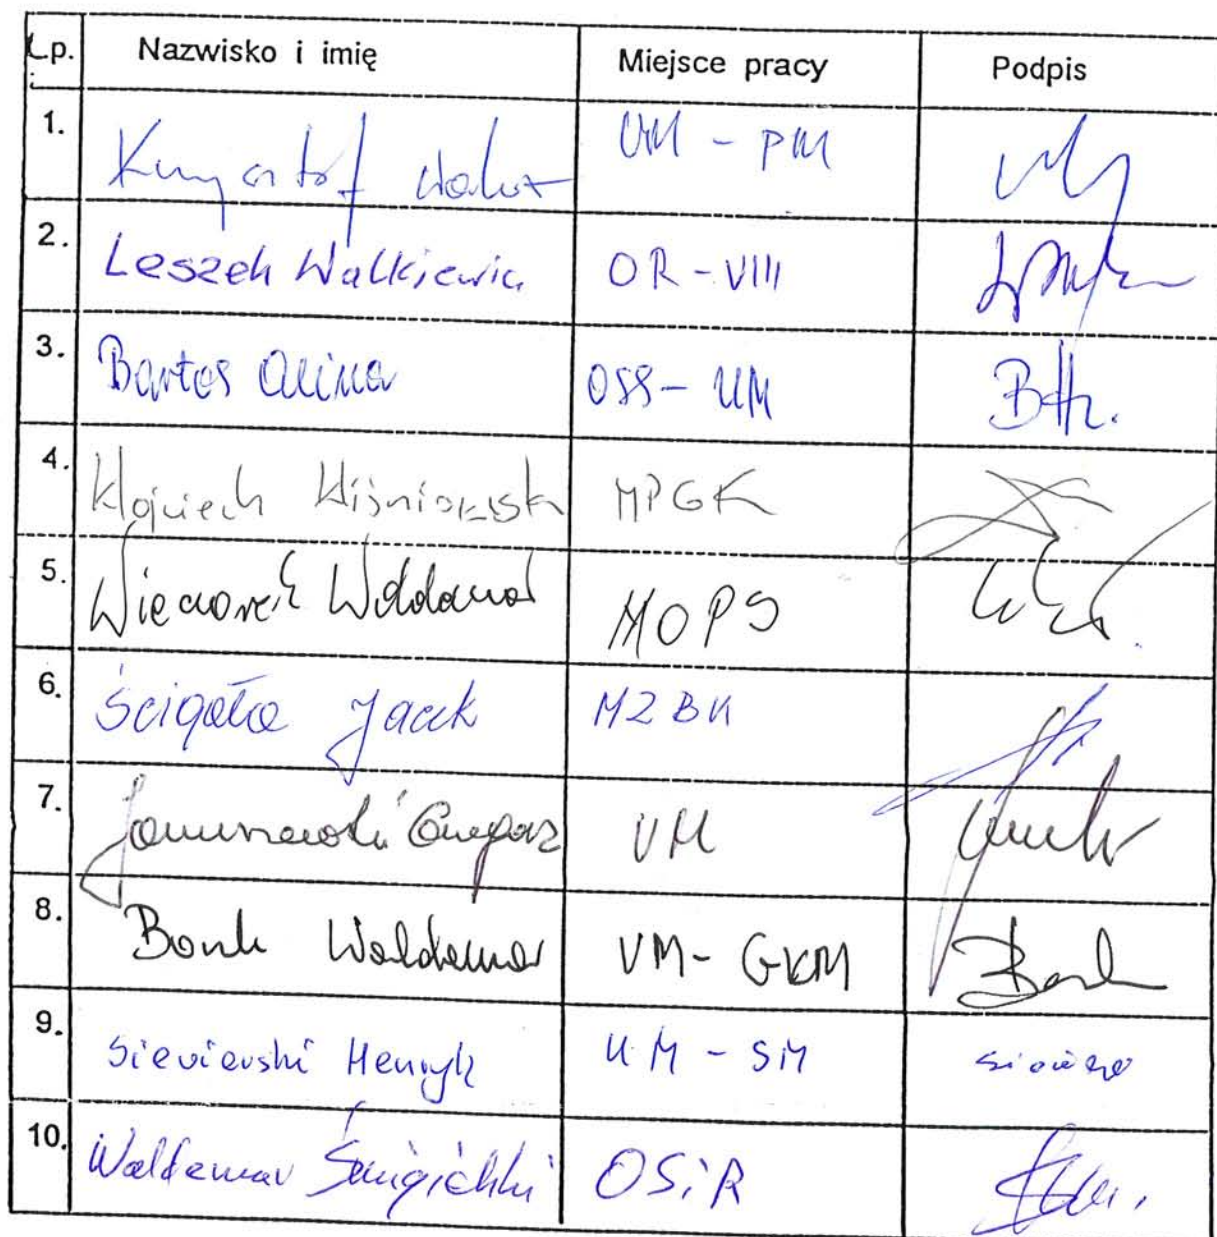 Lp. Nazwisko i imię Miejsce pracy Podpis
1. Krzysztof Walosz UM - PM
2. Leszek Walkiewicz OR - VIII
3. Bartos Alina OSS - UM
4. Wojciech Wiśniowski MPGK
5. Wieczorek Waldemar MOPS
6. Ścigała Jacek MZBK
7. Grzegorz UM
8. Bonk Waldemar UM - GKM
9. Siewierski Henryk UM - SM
10. Waldemar Śmigielski OSiR